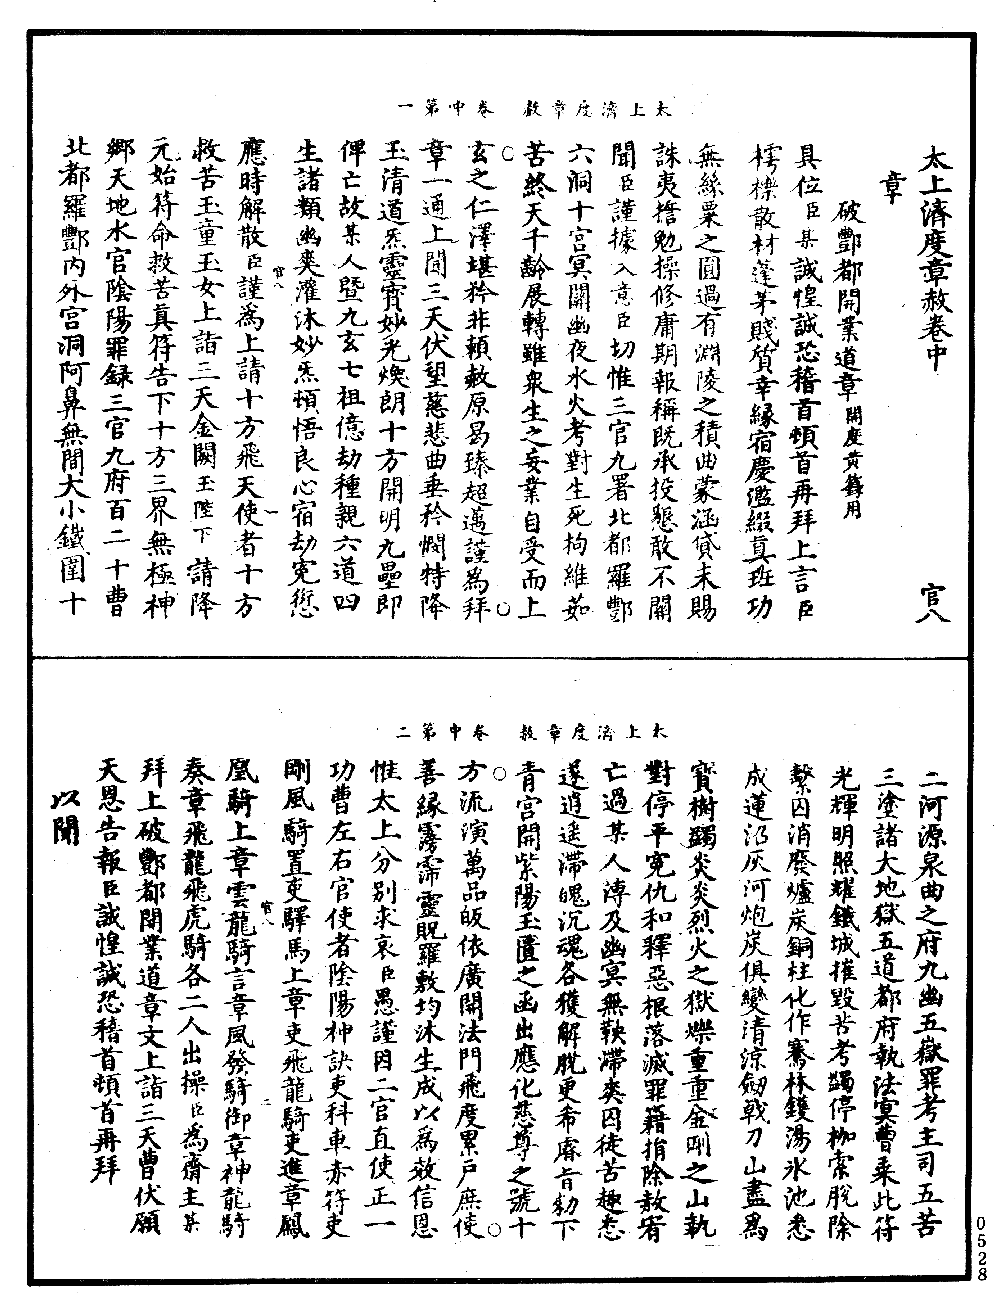 太上濟度章赦卷中第一
太上濟度章赦卷中　官八
章
破酆都開業道章開度黃籙用
具位臣某誠惶誠恐稽首頓首再拜上言臣
樗櫟散材蓬茅賤質幸緣宿慶濫綴真班功
無絲粟之圓過有淵陵之積曲蒙涵貸未賜
誅夷撿勉操修庸期報稱既承投懇敢不關
聞臣謹據入意臣切惟三官九署北都羅酆
六洞十宮冥關幽夜水火考對生死拘維茹
苦終天千齡展轉雖衆生之妄業自受而上
玄之仁澤堪矜非頼敕原曷臻超邁謹為拜
章一通上聞三天伏望慈悲曲垂矜憫特降
玉清道炁靈寳妙光煥朗十方開明九壘即
俾亡故某人暨九玄七祖億劫種親六道四
生諸類幽爽濯沐妙炁頓悟良心宿劫寃愆
應時解散臣謹為上請十方飛天使者十方
官八　一
救苦玉童玉女上詣三天金闕玉陛下請降
元始符命救苦真符告下十方三界無極神
鄉天地水官陰陽罪録三官九府百二十曹
北都羅酆内外宫洞阿鼻無間大小鐵圍十
太上濟度章赦卷中第二
二河源泉曲之府九幽五獄罪考主司五苦
三塗諸大地獄五道都府執法㝠曹乘此符
光輝明照耀鐵城摧毀苦考蠲停枷索脫除
繫囚消廢爐炭銅柱化作騫林鑊湯氷池悉
成蓮沼灰河炮炭俱變清涼劒戟刀山盡為
寳樹蠲炎炎烈火之獄爍重重金剛之山執
對停平寃仇和釋惡根落滅罪籍捎除赦宥
亡過某人溥及幽㝠無鞅滯爽囚徒苦趣悉
遂逍遥滯魄沉魂各獲解脫更希睿旨勑下
青宫開紫陽玉匱之函出應化慈尊之號十
方流演萬品皈依廣開法門飛度累户庶使
善縁霶霈靈貺羅敷均沐生成以為效信恩
惟太上分別求哀臣愚謹因二官直使正一
功曹左右官使者陰陽神訣吏科車赤符吏
剛風騎置吏驛馬上章吏飛龍騎吏進章鳳
凰騎上章雲龍騎言章風發騎御章神龍騎
官八　二
奏章飛龍飛虎騎各二人出操臣為齋主某
拜上破酆都開業道章文上詣三天曹伏願
天恩告報臣誠惶誠恐稽首頓首再拜
以聞
0528